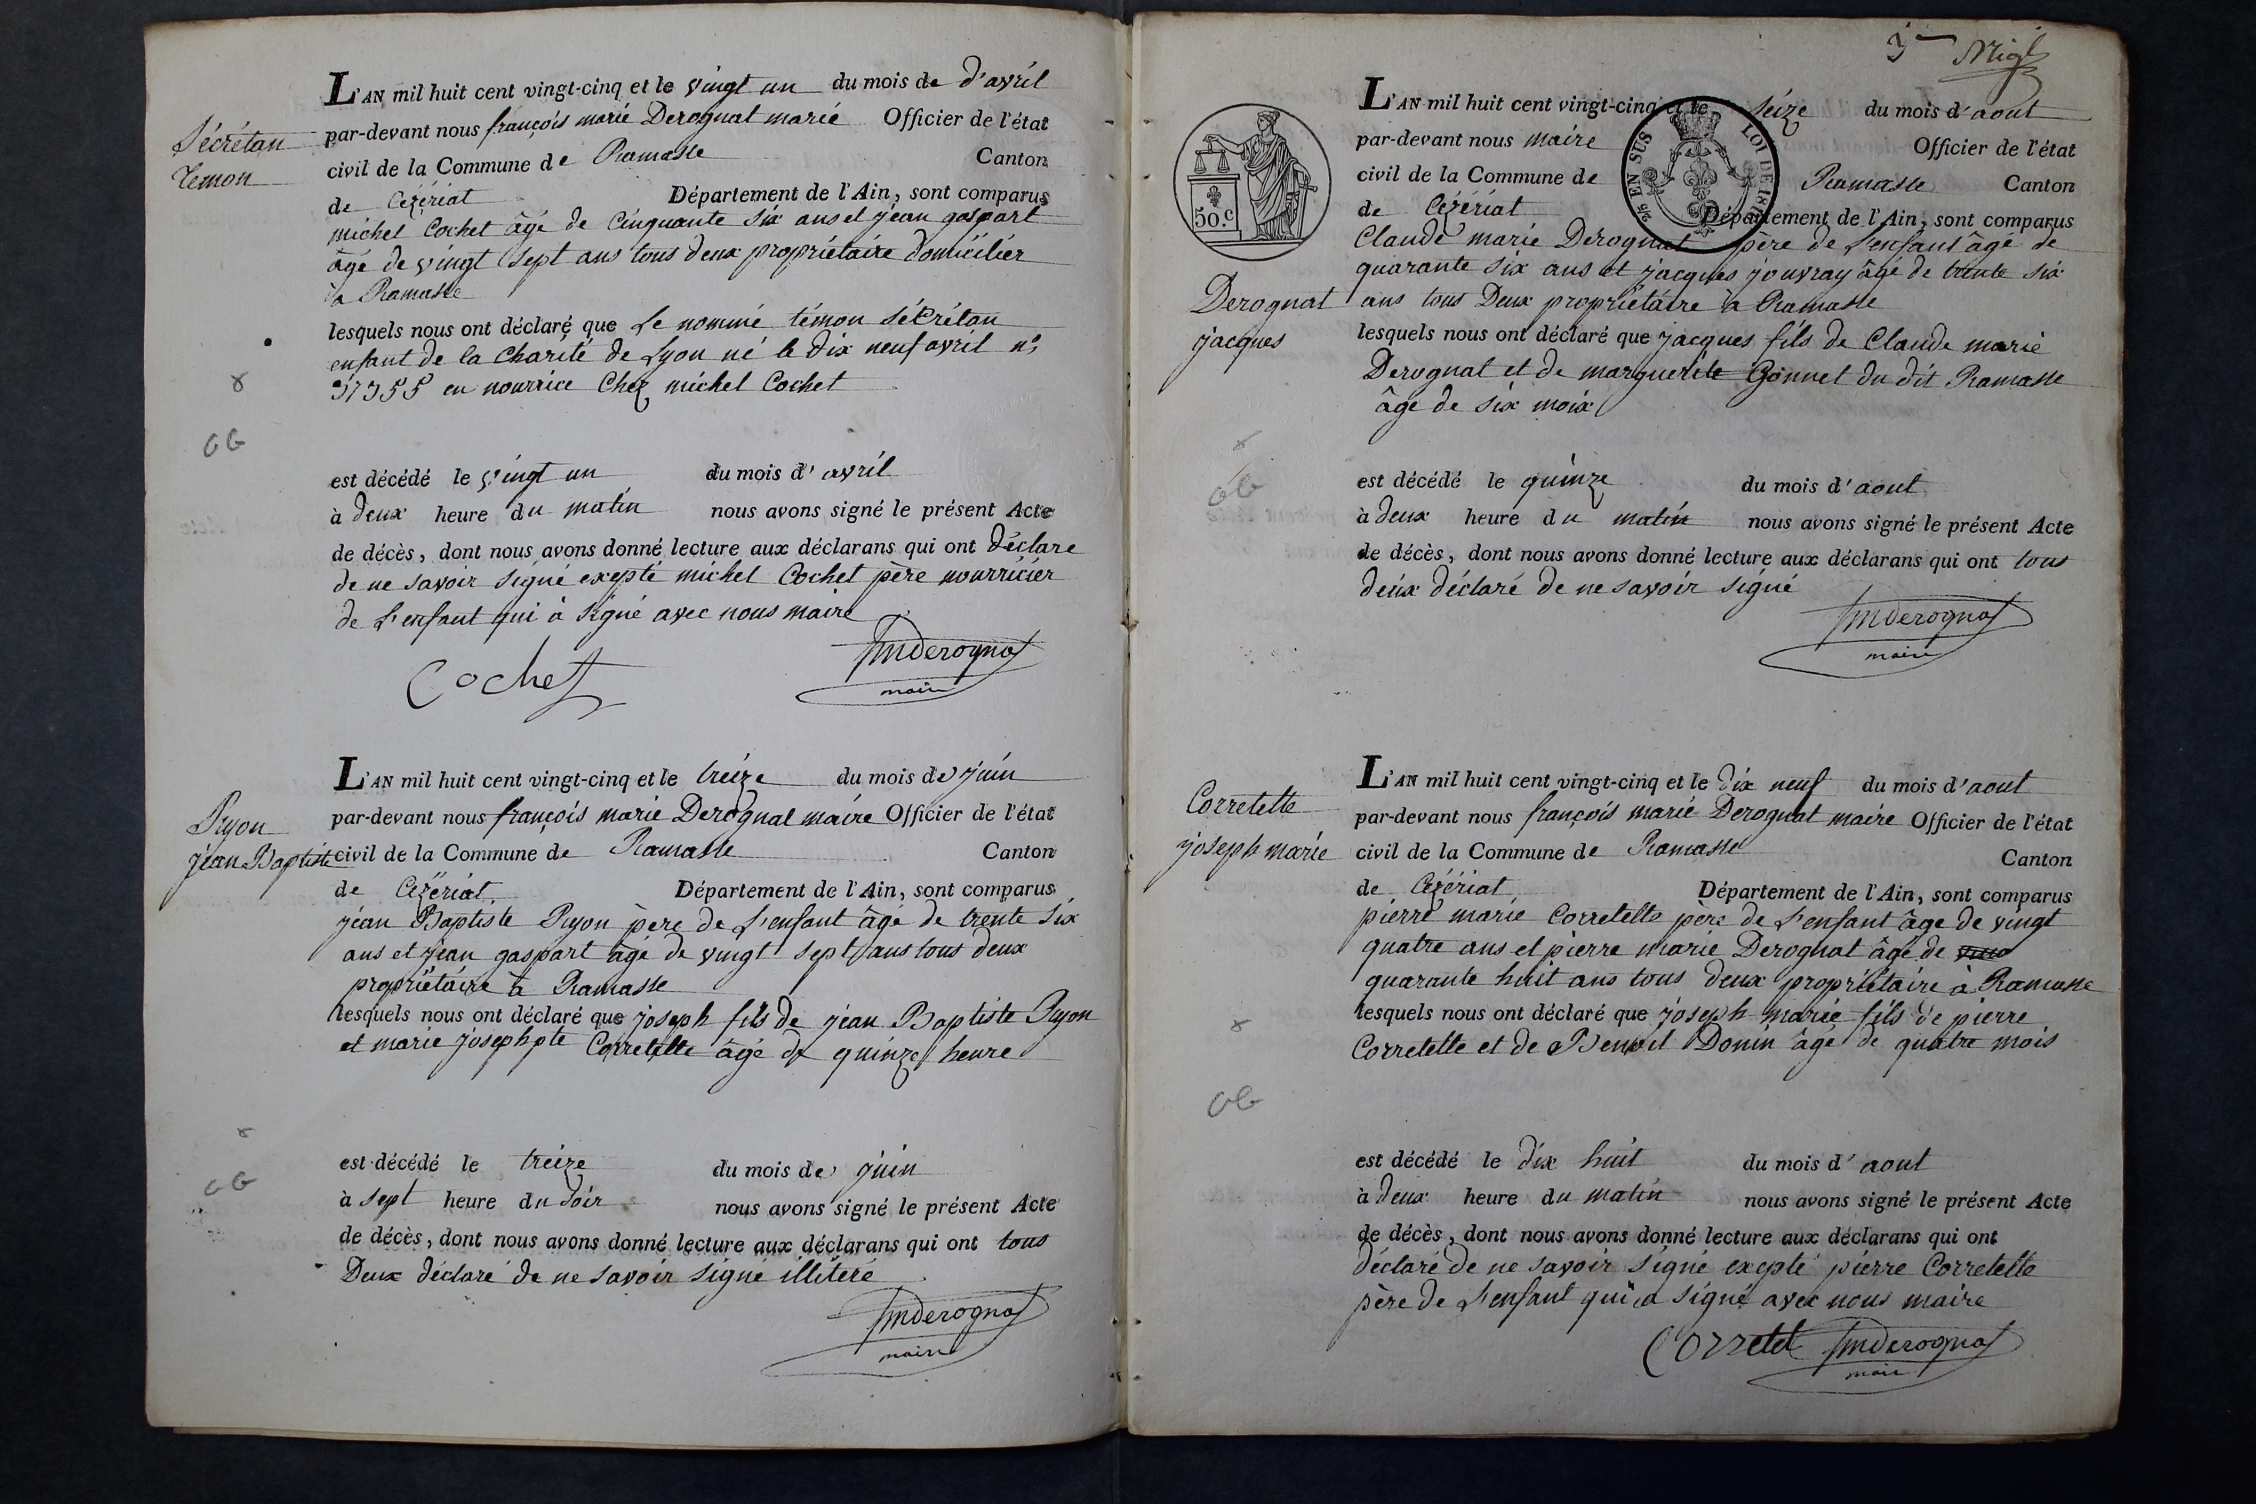 L'AN mil huit cent vingt-cinq et le vingt un du mois de d'avril
Sécrétan
témon
par-devant nous françois marie Derognat marié Officier de l'état
civil de la Commune de Ramasse Canton
de Cézériat Département de l'Ain, sont comparus
michel Cochet âgé de Cinquante Six ans et jean gaspart
âgé de vingt Sept ans tous deux propriétaire domicilier
à Ramasse
lesquels nous ont déclaré que Le nommé témon Sécrétan
enfant de la Charité de Lyon né le dix neuf avril n°
37355 en nourrice Chez michel Cochet
est décédé le vingt un du mois d'avril
à deux heure du matin nous avons signé le présent Acte
de décès, dont nous avons donné lecture aux déclarans qui ont Déclare
de ne savoir signé excepté michel Cochet père nourricier
de L'enfant qui à signé avec nous maire
Cochet fmderognat
maire
L'AN mil huit cent vingt-cinq et le treize du mois de juin
Puyon
jean Baptiste
par-devant nous françois marie Derognat maire Officier de l'état
civil de la Commune de Ramasse Canton
de Cézériat Département de l'Ain, sont comparus
jean Baptiste Puyon père de L'enfant âgé de trente Six
ans et jean gaspart âgé de vingt sept ans tous deux
propriétaire à Ramasse
lesquels nous ont déclaré que joseph fils de jean Baptiste Puyon
et marie josephpte Corretelle âgé de quinze heure
est décédé le treize du mois de juin
à sept heure du Soir nous avons signé le présent Acte
de décès, dont nous avons donné lecture aux déclarans qui ont tous
Deux déclaré de ne savoir signé illitéré
fmderognat
maire
3me
L'AN mil huit cent vingt-cinq et le Seize du mois d'aout
par-devant nous maire Officier de l'état
civil de la Commune de Ramasse Canton
de Cézériat Département de l'Ain, sont comparus
50.c
2/5 EN SUS LOI DE 1816
Claude marie Derognat père de L'enfant âgé de
quarante six ans et jacques jouvray âgé de trente six
Derognat
jacques
ans tous Deux propriétaire à Ramasse
lesquels nous ont déclaré que jacques fils de Claude marie
Derognat et de marguerite Gonnet du dit Ramasse
âge de six moix
est décédé le quinze du mois d'aout
à deux heure du matin nous avons signé le présent Acte
de décès, dont nous avons donné lecture aux déclarans qui ont tous
deux déclaré de ne savoir signé
fmderognat
maire
L'AN mil huit cent vingt-cinq et le dix neuf du mois d'aout
Corretelle
joseph marie
par-devant nous françois marie Derognat maire Officier de l'état
civil de la Commune de Ramasse Canton
de Cézériat Département de l'Ain, sont comparus
pierre marie Corretelle père de L'enfant âge de vingt
quatre ans et pierre marie Derognat âgé de
quarante huit ans tous deux propriétaire à Ramasse
lesquels nous ont déclaré que joseph marie fils de pierre
Corretelle et de Benoit Donin âgé de quatre mois
est décédé le dix huit du mois d'aout
à deux heure du matin nous avons signé le présent Acte
de décès, dont nous avons donné lecture aux déclarans qui ont
déclaré de ne savoir signé excepté pierre Corretelle
père de L'enfant qui a signé avec nous maire
Corretel fmderognat
maire